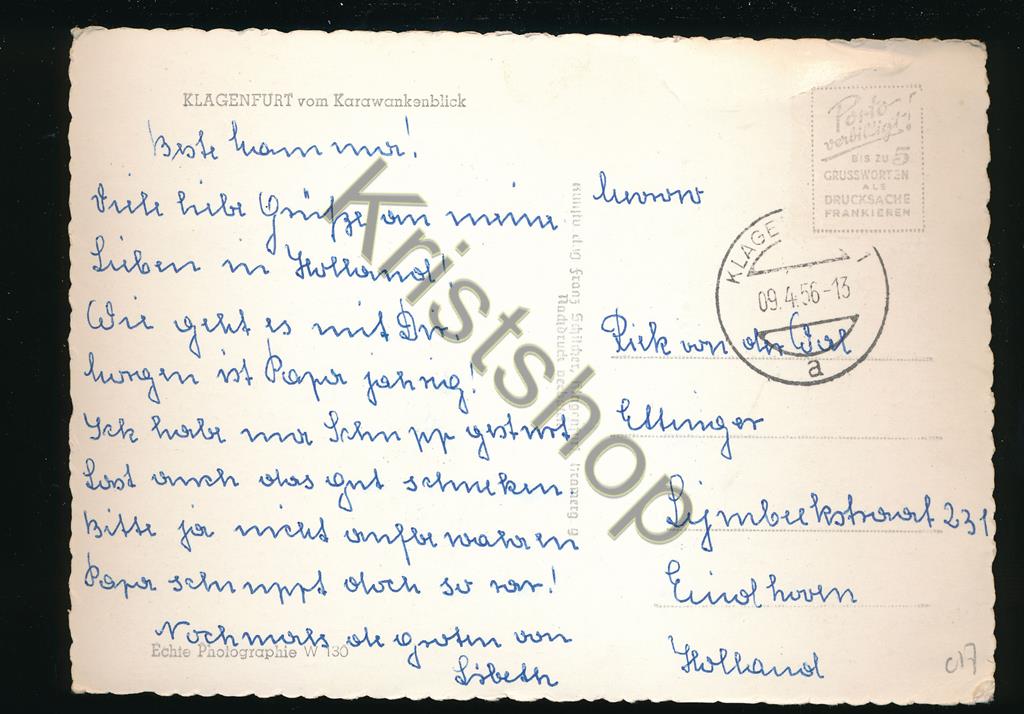 KLAGENFURT vom Karawankenblick
Beste Mamma!
Viele liebe Grüße an meine
Lieben in Holland!
Wie geht es mit Dir.
Morgen ist Papa jahrig!
Ick habe ma Schnupp gesturt
Last auch das gut schmeken
Bitte ja nicht aufbewahren
Papa schnuppt doch so rar!
Nochmals de groten van
Lisbeth
Echte Photographie W 130
Porto
verbilligt!
BIS ZU 5
GRUSSWORTEN
ALS
DRUCKSACHE
FRANKIEREN
KLAGE
09.4.56-13
a
Mevrow
Piek van der Wal
Ettinger
Lijmbeekstraat 231
Eindhoven
Holland
c17
Kristshop